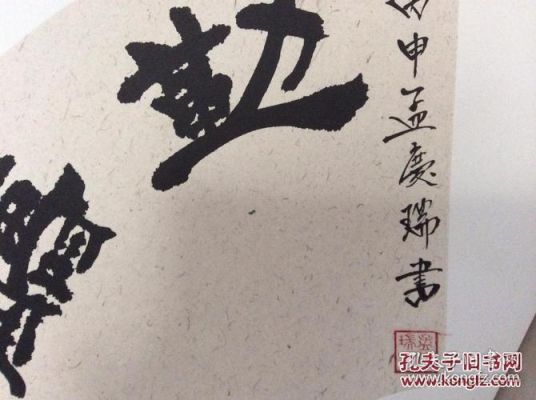 勤
丙申孟慶瑞書
孔夫子旧书网
www.kongfz.com